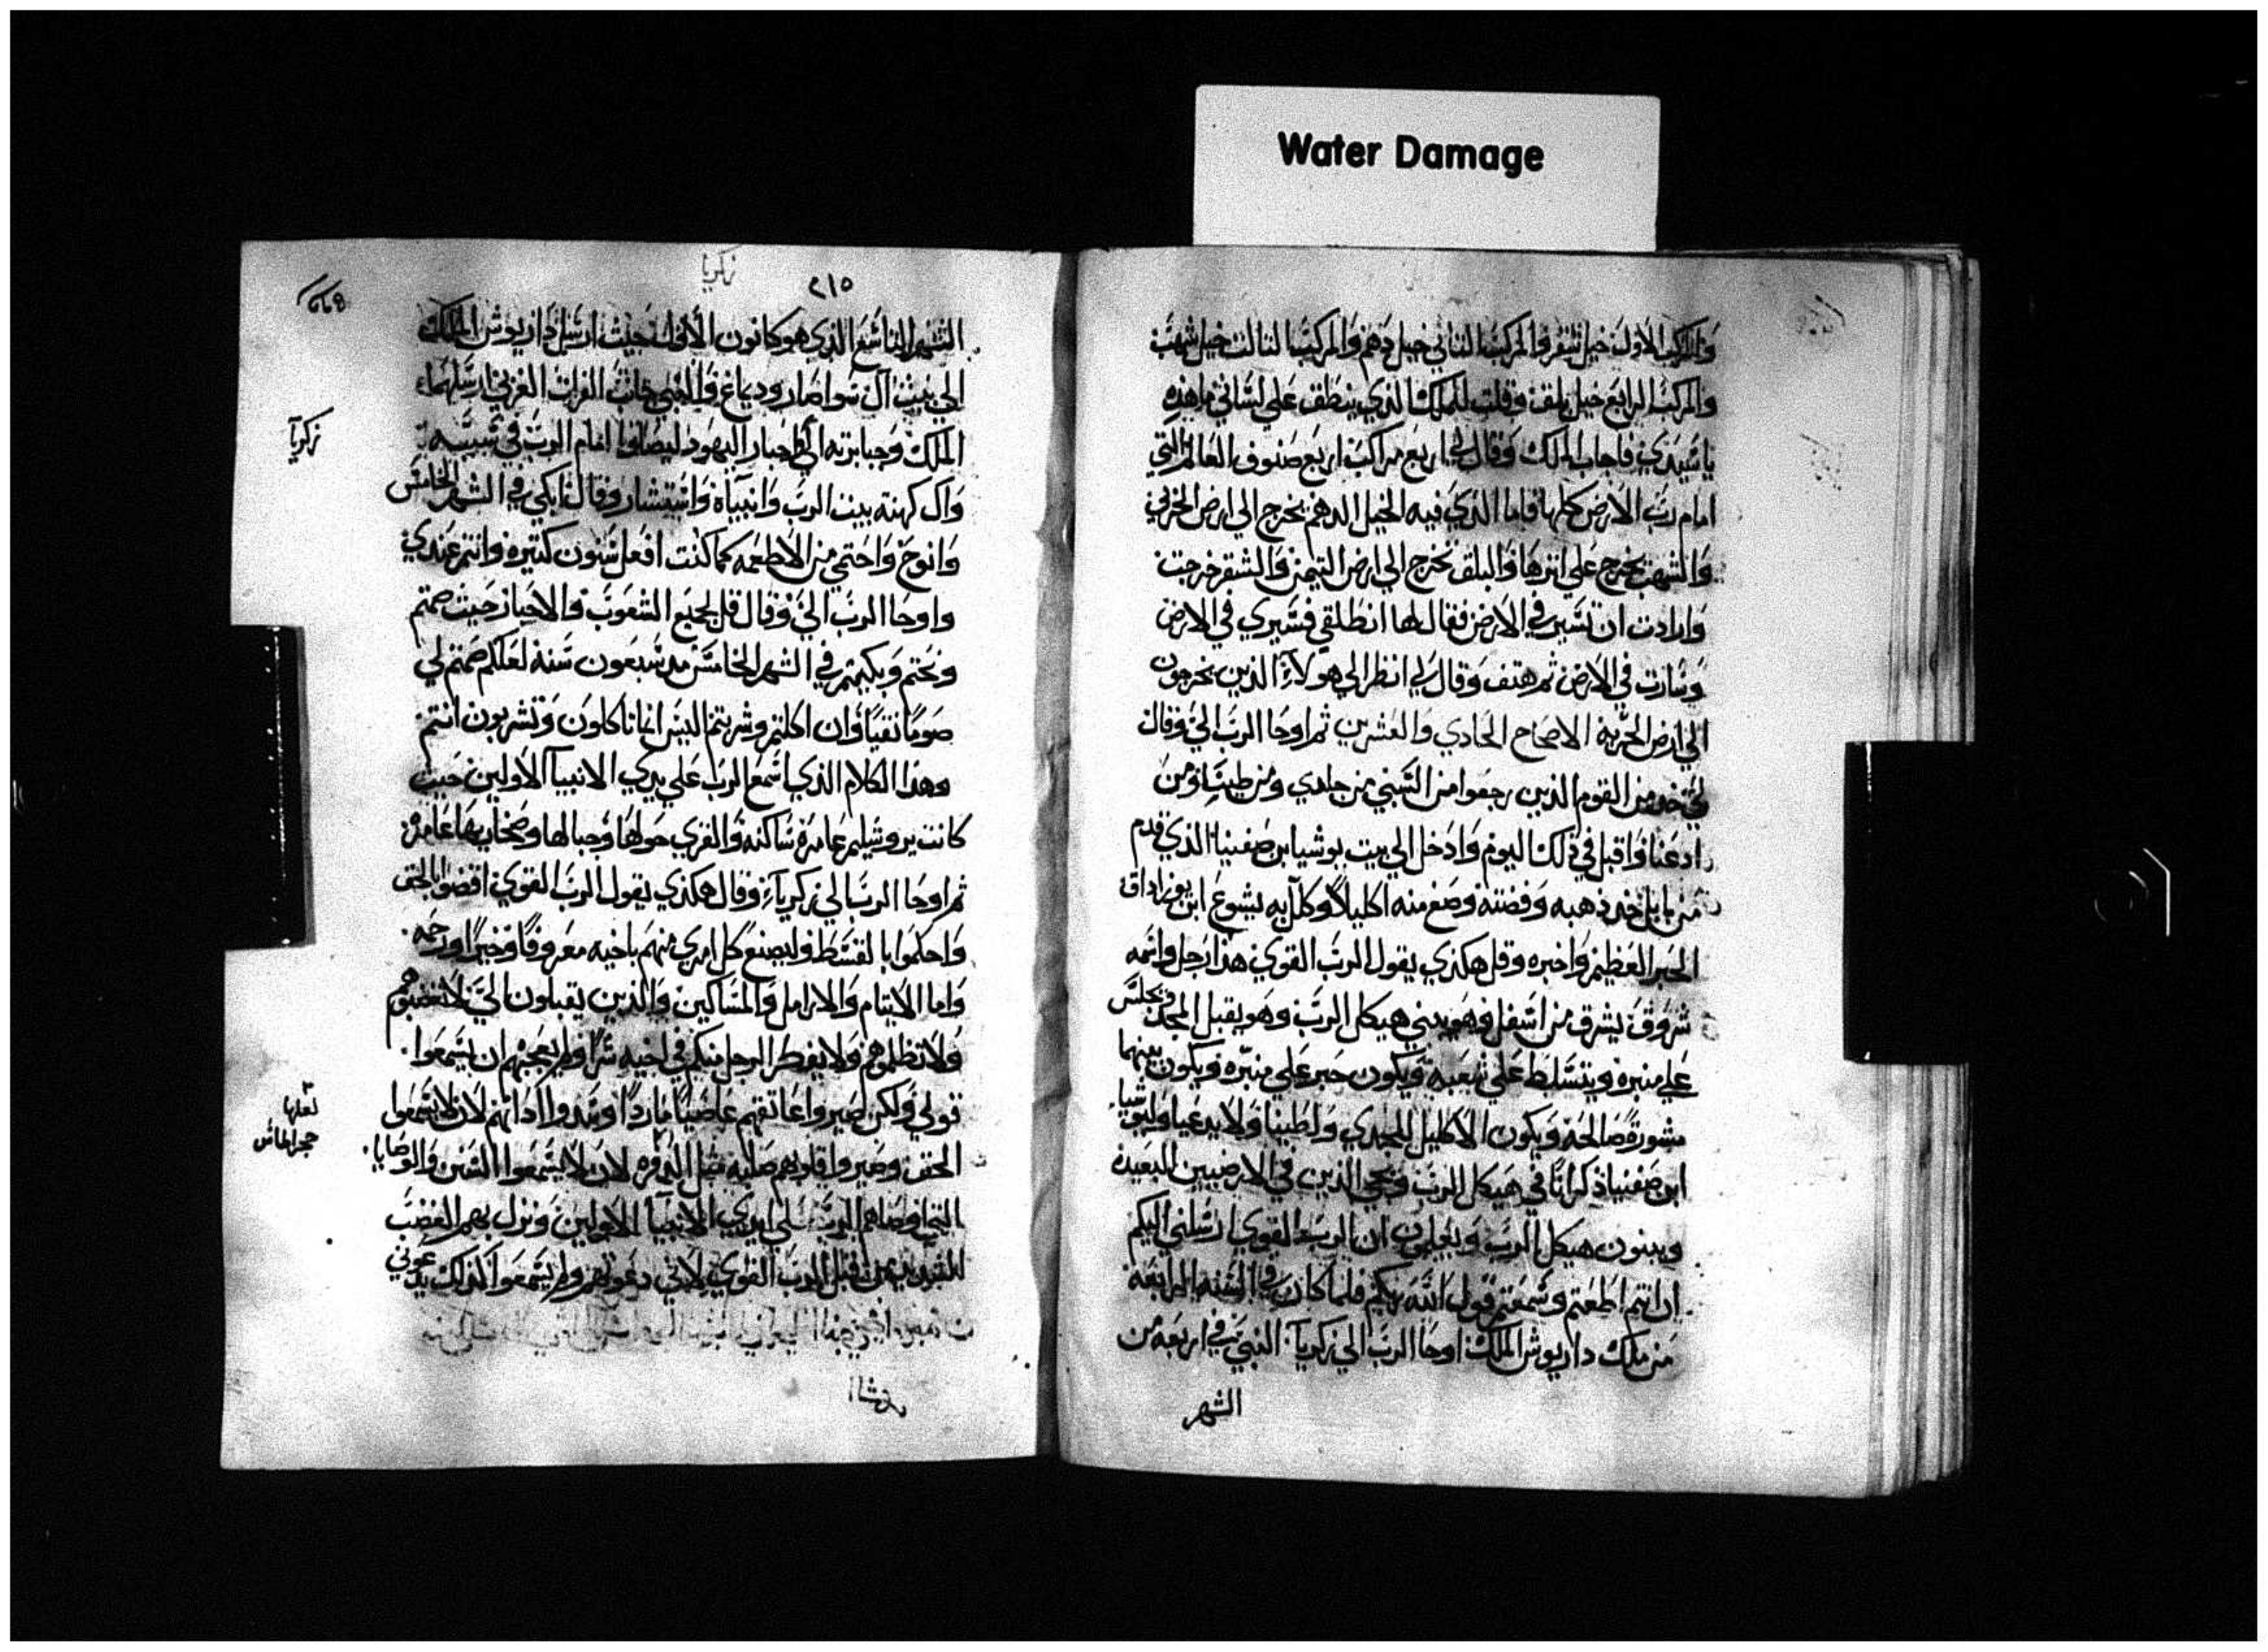 Water Damage
والمركب الاول خيل شقر والمركب الثاني خيل دهم والمركب الثالث خيل شهب
والمركب الرابع خيل بلق وقلت للملك الذي ينطق علي لساني ما هذه
يا سيدي فاجاب الملك وقال لي اربع مراكب اربع صنوف العالم التي
امام رب الارض كلها فاما الذي فيه الخيل الدهم يخرج الي ارض الخربي
والشهب يخرج علي اثرها والبلق يخرج الي ارض التيمن والشقر خرجت
وارادت ان تسير في الارض فقال لها انطلقي فسيري في الارض
وسارت في الارض ثم هتف وقال لي انظر الي هولاء الذين يخرجون
الي ارض الخربه الاصحاح الحادي والعشرين ثم اوحا الرب الي وقال
لي خد من القوم الذين رجعوا من السبي من جلدي ومن طيبا ومن
ادعنا واقبل في ذلك اليوم وادخل الي بيت يوشيا بن صفنيا الذي قدم
من بابل خد ذهبه وفضته وصنع منه اكليلاً وكلل به يشوع ابن يوزاداق
الحبر العظيم واخبره وقل هكذي يقول الرب القوي هذا رجل واسمه
شروق يشرق من اسفل وهو يبني هيكل الرب وهو يقبل المجد ويجلس
علي منبره ويتسلط علي شعبه ويكون حبر علي منبره ويكون بينهما
مشورة صالحه ويكون الاكليل للجدي ولطبيا ولايدعيا وليوشيا
ابن صفنيا ذكرانا في هيكل الرب ويجي الذين في الارضيين البعيده
ويبنون هيكل الرب ويعلمون ان الرب القوي ارسلني اليكم
ان انتم اطعتم وسمعتم قول الله ربكم فلما كان في السنه الرابعه
من ملك داريوش الملك اوحا الرب الي زكريا النبي في اربعه من
الشهر
زكريا
٢١٥
الشهر التاسع الذي هو كانون الاول حيث ارسل داريوش الملك
الي بيت ال
زكريا
الملك وجبابرته الي احبار اليهود ليصلوا امام الرب في
وال كهنته بيت الرب وانبياه واستشار وقال ابكي في الشهر الخامس
وانوح واحتمي من الاطعمه كما كنت افعل سنون كثيره وانتم عندي
واوحا الرب الي وقال قل لجميع الشعوب والاحبار حيث صمتم
ونحتم وبكيتم في الشهر الخامس مد سبعون سنة لعلكم صمتم لي
صوماً نقياً وان اكلتم وشربتم اليس انما تاكلون وتشربون انتم
وهذا الكلام الذي اسمع الرب علي يدي الانبيا الاولين حيث
كانت يروشليم عامرة ساكنه والقري حولها وجبالها وصحاريها عامره
ثم اوحا الرب الي زكرياء وقال هكذي يقول الرب القوي اقضوا بالحق
واحكموا بالقسط وليصنع كل امري منهم باخيه معروفاً وخيراً ورحمه
واما الايتام والارامل والمساكين والذين يقبلون الي لا تغضبوهم
ولا تظلموهم ولا يفكر الرجل منكم في اخيه شراً ولم يعجبهم ان يسمعوا
قولي ولكن صيروا عاتقهم عاصياً مارداً وسدوا اداتهم لان لا يسمعوا
لعلها
حجر الماس
الحق وصيروا قلوبهم صلبه مثل لان لا يسمعوا السنن والوصايا
التي اوصاهم الرب علي ايدي الانبيا الاولين ونزل بهم الغضب
الشديد من قبل الرب القوي لاني دعوتهم ولم يسمعوا كذلك يدعوني